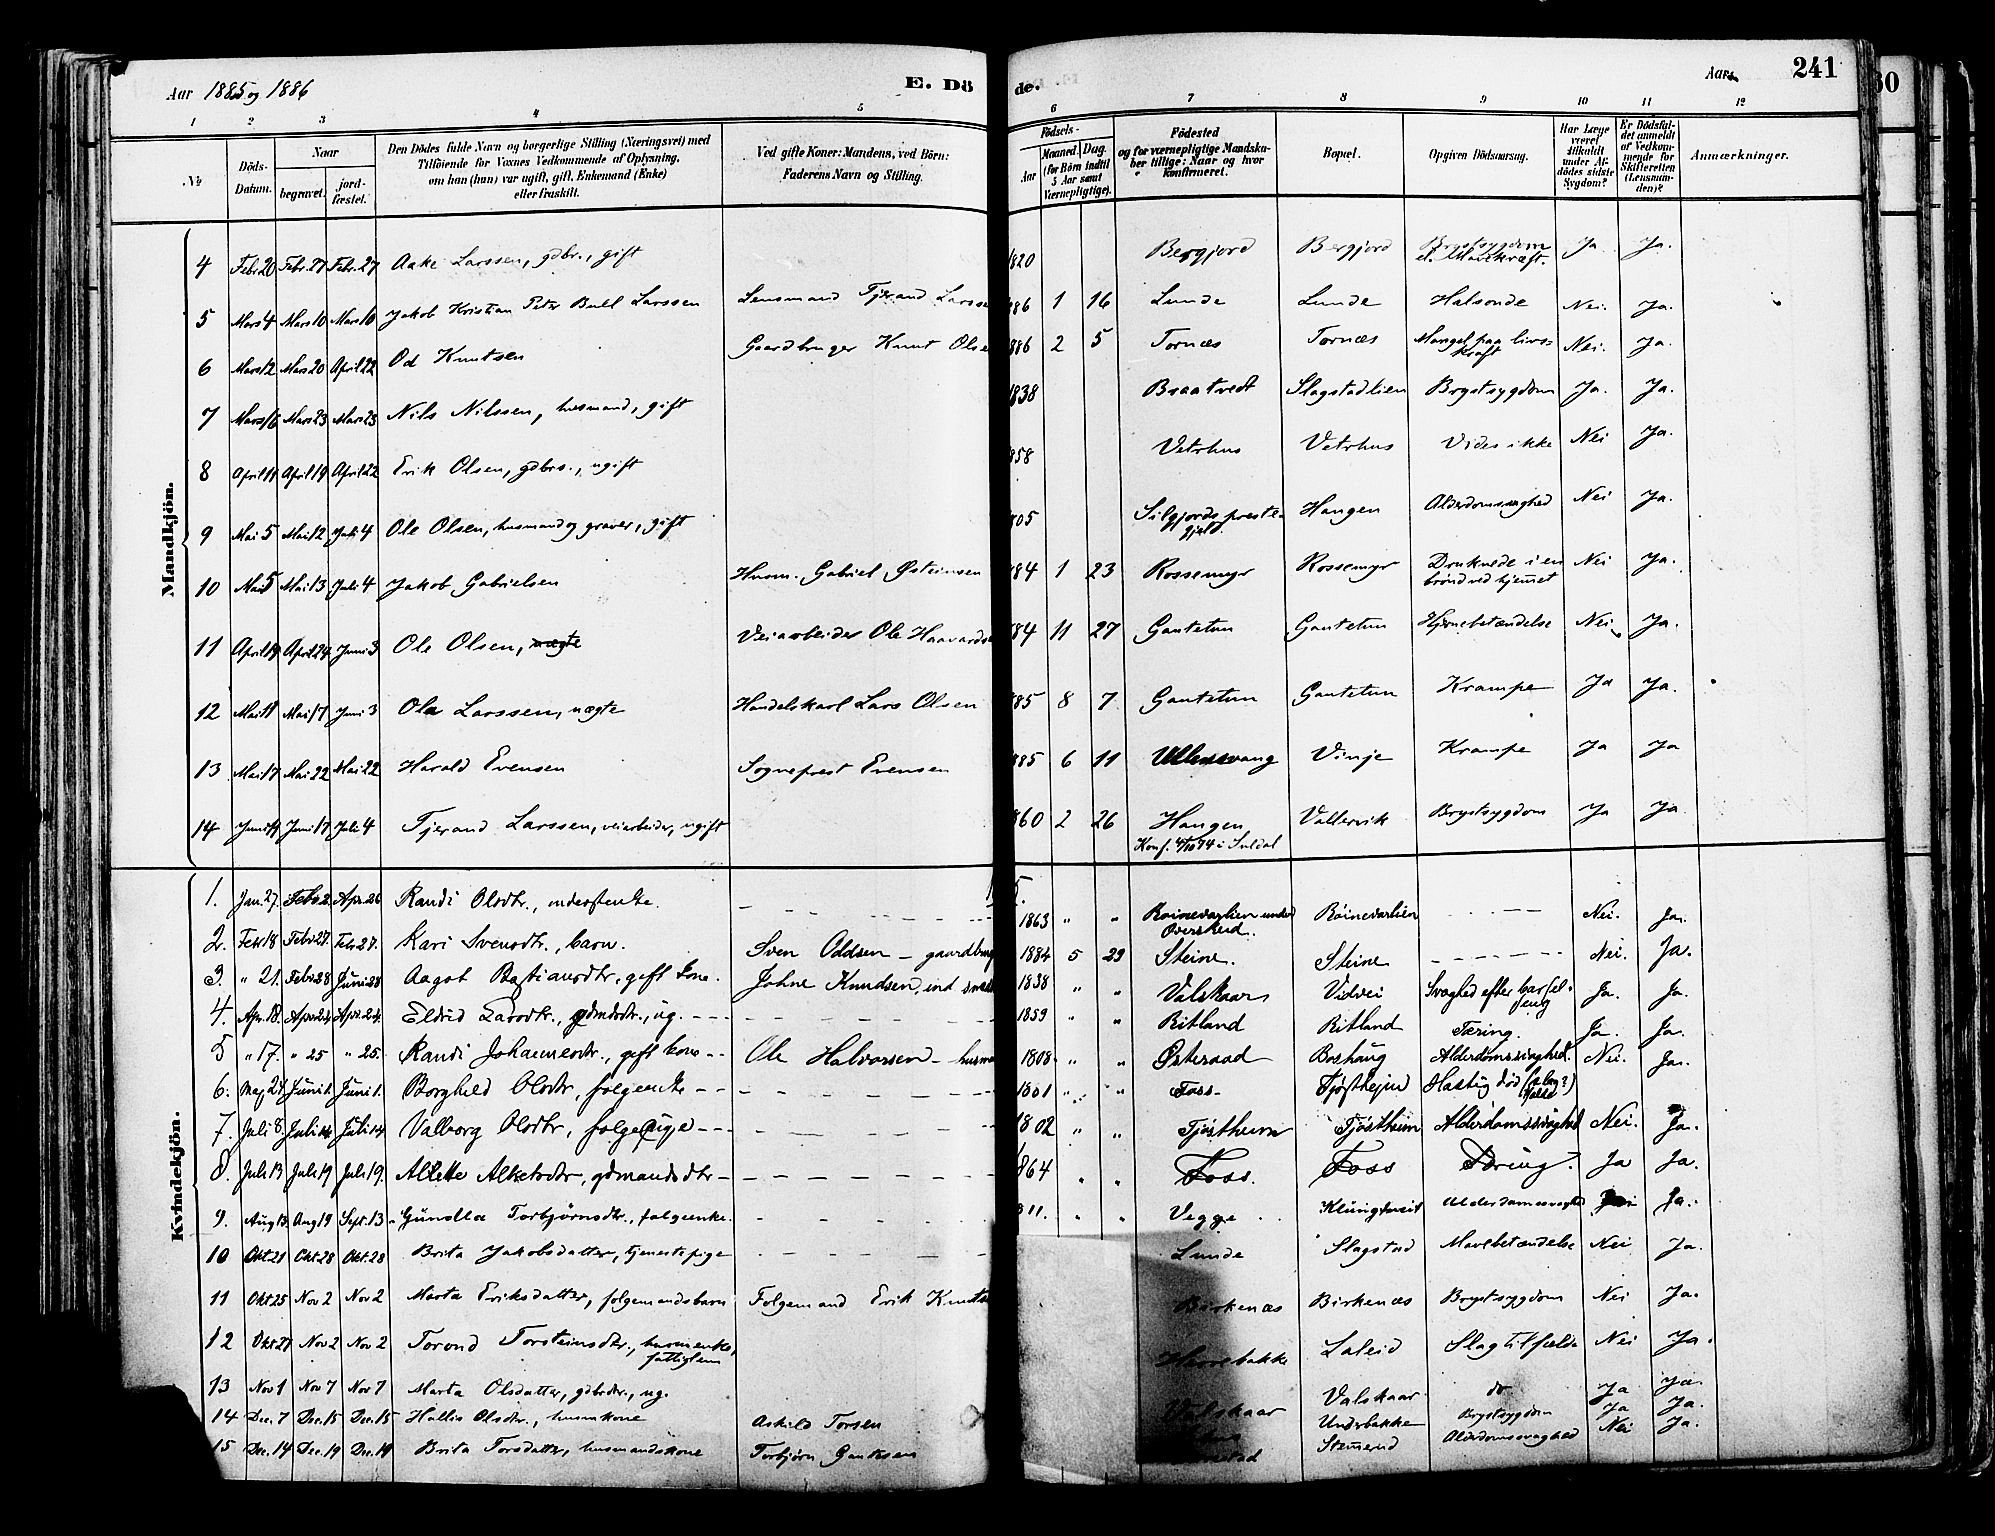 Aar 1885 og 1886
E. Dö
de.
Aar
241
1 2 3 4 5 6 7 8 9 10 11 12
№
Döds-Datum.
Naar
begravet.
jord-fæstet.
Den Dödes fulde Navn og borgerlige Stilling (Næringsvei) med
Tilföiende for Voxnes Vedkommende af Oplysning,
om han (hun) var ugift, gift, Enkemand (Enke)
eller fraskilt.
Ved gifte Koner: Mandens, ved Börn:
Faderens Navn og Stilling.
Födsels-
Aar
Maaned
Dag
(for Börn indtil
5 Aar samt
Værnepligtige).
Födested
og for værnepligtige Mandska-
ber tillige: Naar og hvor
konfirmeret.
Bopæl.
Opgiven Dödsaarsag.
Har Læge
været
tilkaldt
under Af-
dödes sidste
Sygdom?
Er Dödsfal-
det anmeldt
af Vedkom-
mende for
Skifteretten
(Lensman-
den)?
Anmærkninger.
Mandkjön.
4 Febr 20 Febr. 27 Febr. 27 Aake Larssen, gdbr., gift 1820 Bergjord Bergjord Brystsygdom el. Mavekræft. Ja Ja.
5 Mars 4 Mars 10 Mars 10 Jakob Kristian Peter Bull Larssen Lensmand Tjerand Larsse 886 1 16 Lunde Lunde Halsonde Nei. Ja.
6 Mars 12 Mars 20 April 22 Od Knutsen Gaardbruger Knut Olse 886 2 5 Tornæs Tornæs Mangel paa livs-kraft Nei. Ja.
7 Mars 16 Mars 23 Mars 23 Nils Nilssen, husmand, gift 1838 Braatvedt Slagstadlien Brystsygdom Ja. Ja.
8 April 11 April 19 April 22 Erik Olsen, gdbrs., ugift 858 Vetrhus Vetrhus Vides ikke Nei Ja.
9 Mai 5 Mai 12 Juli 4 Ole Olsen, husmand og graver, gift 805 Silgjords preste-gjeld. Haugen Alderdomsvaghed Nei Ja.
10 Mai 5 Mai 13 Juli 4 Jakob Gabrielsen Husm. Gabriel Østeinsen 884 1 23 Rossemyr Rossemyr Druknede i en brønd ved hjemmet Nei Ja.
11 April 19 April 24 Juni 3 Ole Olsen, nægte Veiarbeider Ole Haavards 884 11 27 Gautetun Gautetun Hjernebetændelse Nei Ja.
12 Mai 11 Mai 17 Juni 3 Ola Larssen, nægte Handelskarl Lars Olsen 885 8 7 Gautetun Gautetun Krampe Ja Ja.
13 Mai 17 Mai 22 Mai 22 Harald Evensen Sogneprest Evensen 885 6 11 Ullensvang Vinje Krampe Ja Ja
14 Juni 11 Juni 17 Juli 4 Tjerand Larssen, veiarbeider, ugift 860 2 26 Haugen Konf. 4/10 74 i Suldal Vallervik Brystsygdom Ja Ja
Kvindekjön.
1. Jan. 27. Febr 2 Apr. 26 Randi Olsdtr., 1863 " " Roinevarlien under Overskeid. Röinevarlien Nei. Ja.
2. Febr 18 Febr. 27. Febr 27. Kari Svensdtr., barn. Sven Oddsen – gaardbrug 1884 5 29 Steine. Steine Nei. Ja.
3. " 21. Febr 28 Juni 28 Aagot Bastiansdtr, gift kone. Johne Knudsen, 1838 " " Valskaar Vidvei Svaghed efter barsel-seng Ja. Ja.
4. Apr. 18. Apr. 24 Apr. 24. Eldrid Larsdtr., gdmdsdtr., ug. 1859 " " Ritland Ritland Tæring. Ja. Ja.
5 " 17. " 25 " 25. Randi Johannesdtr., gift kone Ole Halvorsen – husma 1808 " " Østeraad Boshaug Alderdomssvaghed. Nei. Ja.
6. Maj 27. Juni 1. Juni 1. Borghild Olsdtr, folgeenke 1801 " " Foss Tjøstheim Hastig död (slag?)
7. Juli 8. Juli 14 Juli 14 Valborg Olsdtr, folgepige 1802 " " Tjøstheim Tjøstheim Alderdomssvaghed Nei. Ja.
8. Juli 13 Juli 19 Juli 19. Allette Alketsdtr, gdmandsdtr 864 " " Foss. Foss Tæring. Ja Ja.
9. Aug 13 Aug 19 Sept. 13 Gunilla Torbjørnsdtr., folgeenke. 811. " " Vegge Klungtveit Ja.
10 Okt. 21 Okt. 28 Okt. 28 Brita Jakobsdatter, tjenestepige Lunde Slagstad Mavebetændelse Nei Ja.
11 Okt 25 Nov 2 Nov 2 Marta Eriksdatter, folgemandsbarn Folgemand Erik Knuts Birkenæs Birkenæs Brystsygdom Nei Ja.
12 Okt. 27 Nov 2 Nov 2 Torond Torsteinsdtr., husmenke, fattiglem Herrebakke Laleid Slagtilfælde Nei Ja.
13 Nov 1 Nov 7 Nov 7 Marta Olsdatter, gdbrdr., ug. Valskaar Valskaar do Ja Ja.
14 Dec. 7 Dec. 15 Dec. 15 Hallis Olsdtr., husmkone Askild Torsen Underbakke Brystsygdom Ja Ja.
15 Dec. 14 Dec. 19 Dec. 19 Brita Torsdatter, husmandskone Torbjörn Gautesen Alderdomssvaghed Nei Ja.